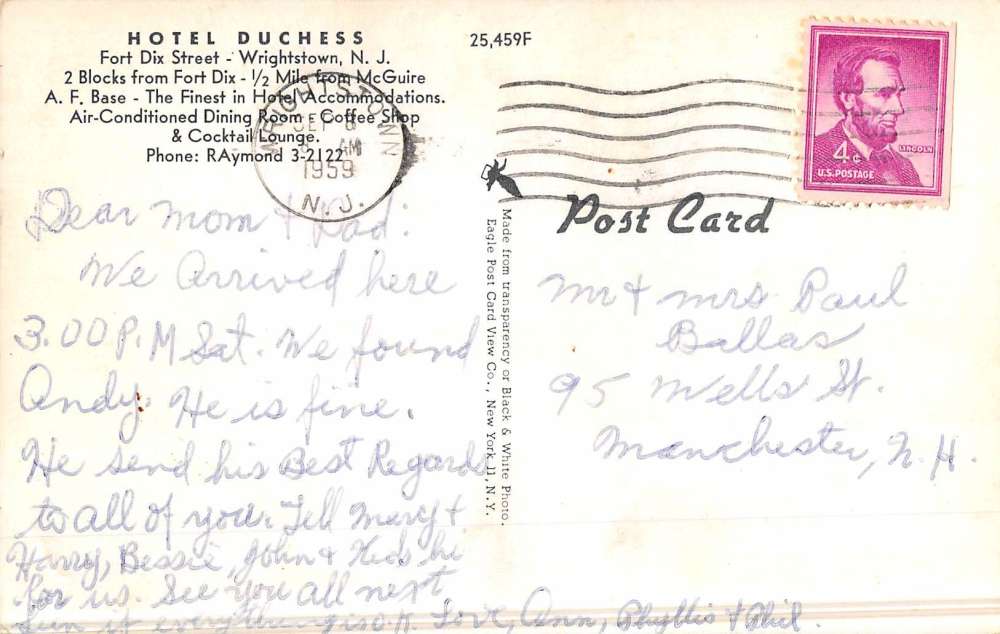 HOTEL DUCHESS
Fort Dix Street - Wrightstown, N. J.
2 Blocks from Fort Dix - 1/2 Mile from McGuire
A. F. Base - The Finest in Hotel Accommodations.
Air-Conditioned Dining Room - Coffee Shop
& Cocktail Lounge.
Phone: RAymond 3-2122
25,459F
WRIGHTSTOWN
AM
1959
N. J.
LINCOLN
4¢
U.S. POSTAGE
Post Card
Made from transparency or Black & White Photo.
Eagle Post Card View Co., New York 11, N.Y.
Dear Mom & Dad:
We Arrived here
3.00 P.M Sat. We found
Andy. He is fine.
He send his Best Regards
to all of you. Tell Mary &
Harry, Bessie, John & Kids hi
for us. See you all next
Sun if everything is O.K. Love, Ann, Phyllis & Phil.
Mr & Mrs Paul
Ballas
95 Wells St.
Manchester, N.H.